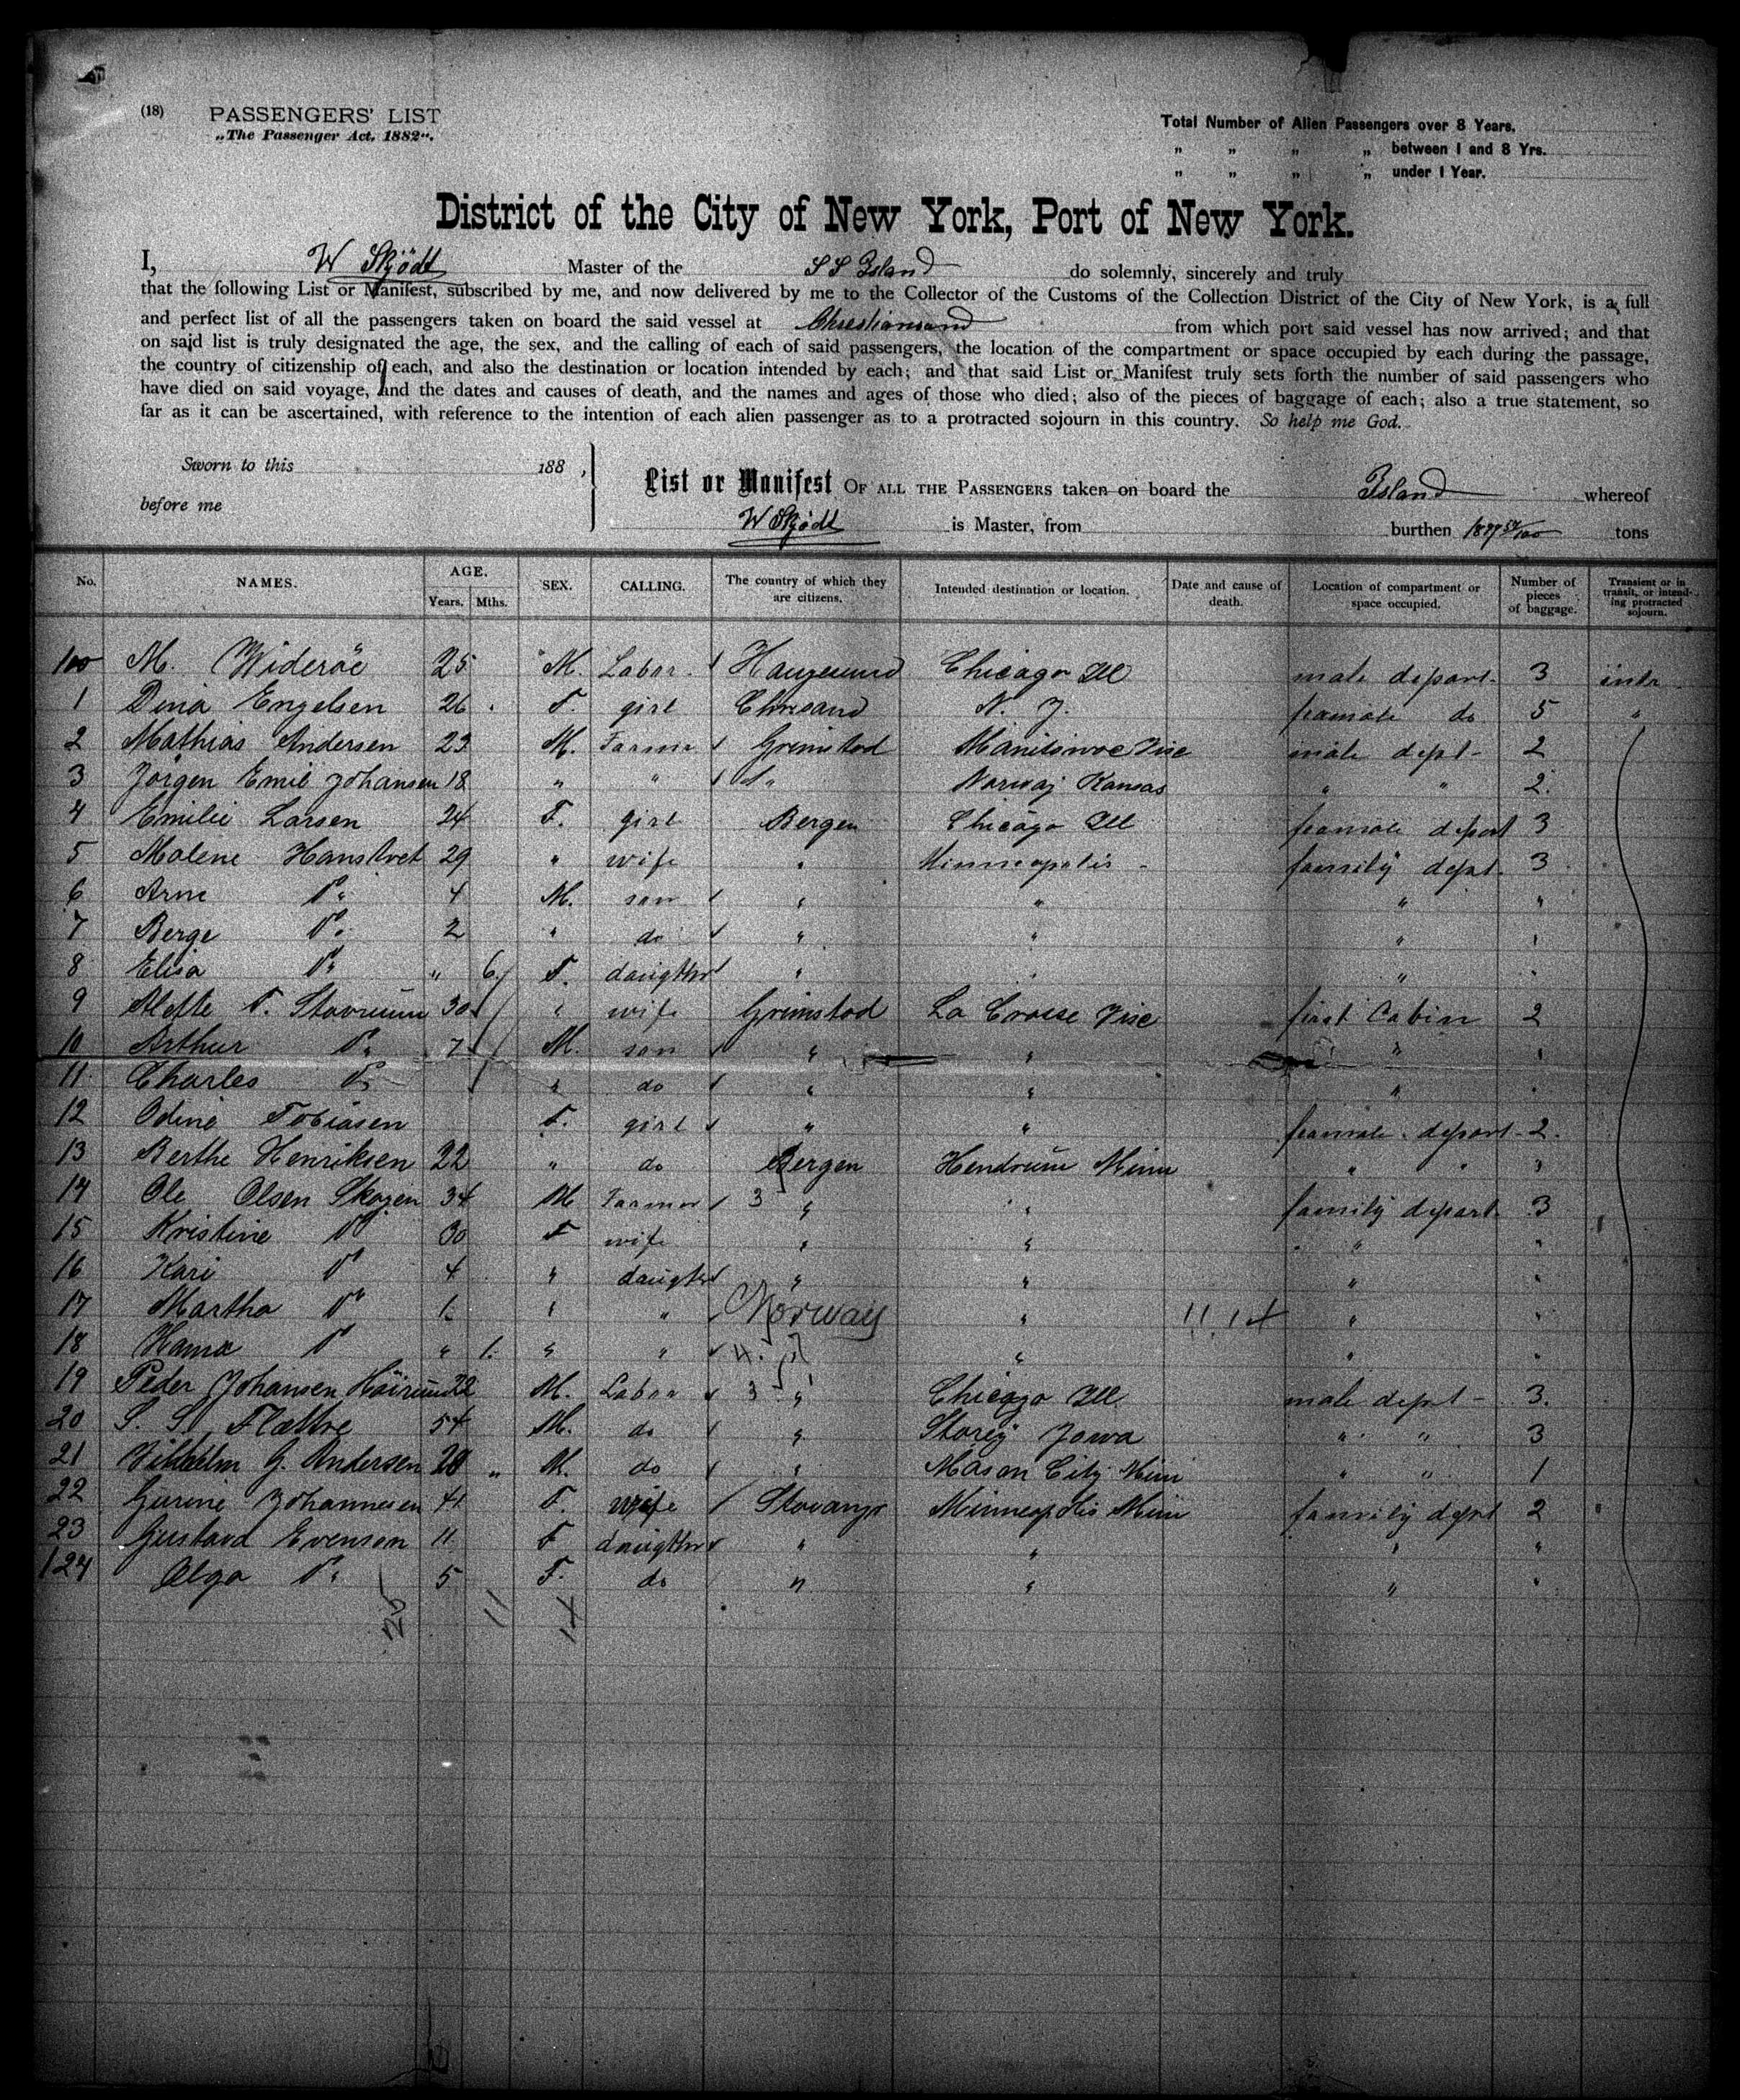 (18) PASSENGERS' LIST
„The Passenger Act, 1882“.
Total Number of Alien Passengers over 8 Years.
„ „ „ „ between 1 and 8 Yrs.
„ „ „ „ under 1 Year.
District of the City of New York, Port of New York.
I, W Skjödt Master of the S S Island do solemnly, sincerely and truly
that the following List or Manifest, subscribed by me, and now delivered by me to the Collector of the Customs of the Collection District of the City of New York, is a full
and perfect list of all the passengers taken on board the said vessel at Christiansand from which port said vessel has now arrived; and that
on said list is truly designated the age, the sex, and the calling of each of said passengers, the location of the compartment or space occupied by each during the passage,
the country of citizenship of each, and also the destination or location intended by each; and that said List or Manifest truly sets forth the number of said passengers who
have died on said voyage, and the dates and causes of death, and the names and ages of those who died; also of the pieces of baggage of each; also a true statement, so
far as it can be ascertained, with reference to the intention of each alien passenger as to a protracted sojourn in this country. So help me God.
Sworn to this 188 ,
before me
List or Manifest OF ALL THE PASSENGERS taken on board the Island whereof
W Skjödt is Master, from burthen tons
No. NAMES. AGE. Years. Mths. SEX. CALLING. The country of which they are citizens. Intended destination or location. Date and cause of death. Location of compartment or space occupied. Number of pieces of baggage. Transient or in transit, or intending protracted sojourn.
100 M. Wideröe 25 M. Labor. Haugesund Chicago Ill male depart. 3
1 Dina Engelsen 26 F. girl Chrsand N. J. feamale do 5 "
2 Mathias Andersen 23 M. Farmer Grimstad Manitowoc Visc male dept- 2
3 Jörgen Emil Johansen 18 " " " Norway Kansas " " 2.
4 Emilie Larsen 24 F. girl Bergen Chicago Ill feamale depart 3
5 Malene 29 " wife " Minneapolis - family dept. 3
6 Arne Do 4 M. son " " " "
7 Berge Do 2 " do " " " "
8 Elisa Do " 6. F. daugther " " " "
9 Mette F. Stavrum 30 " wife Grimstad La Crosse Visc first Cabin 2
10 Arthur Do 7 M. son " " " "
11 Charles Do " do " " " "
12 Odine Tobiasen F. girl " " feamale depart- 2.
13 Berthe Henriksen 22 " do Bergen Hendrum Minn " " 3
14 Ole Olsen Skogen 34 M Farmer 3 " " family depart. 3
15 Kristine Do 30 F wife " " " "
16 Kari Do 4 " daugther " " " "
17 Martha Do 1. " " Norway " 11.14 " "
18 Do " 1. " " 4. " " "
19 Peder Johansen 22 M. Labor 3 " Chicago Ill. male dept- 3.
20 S. S. 54 M. do " Story Jowa " " 3
21 Vilhelm G. Andersen 20 " M. do " Mason City Minn " " 1
22 Gurine Johannesen 41 F. wife Stavanger Minneapolis Minn family dept 2
23 Gustava Evensen 11 F daugther " " " "
124 Olga Do 5 F. do " " " "
25 11 14